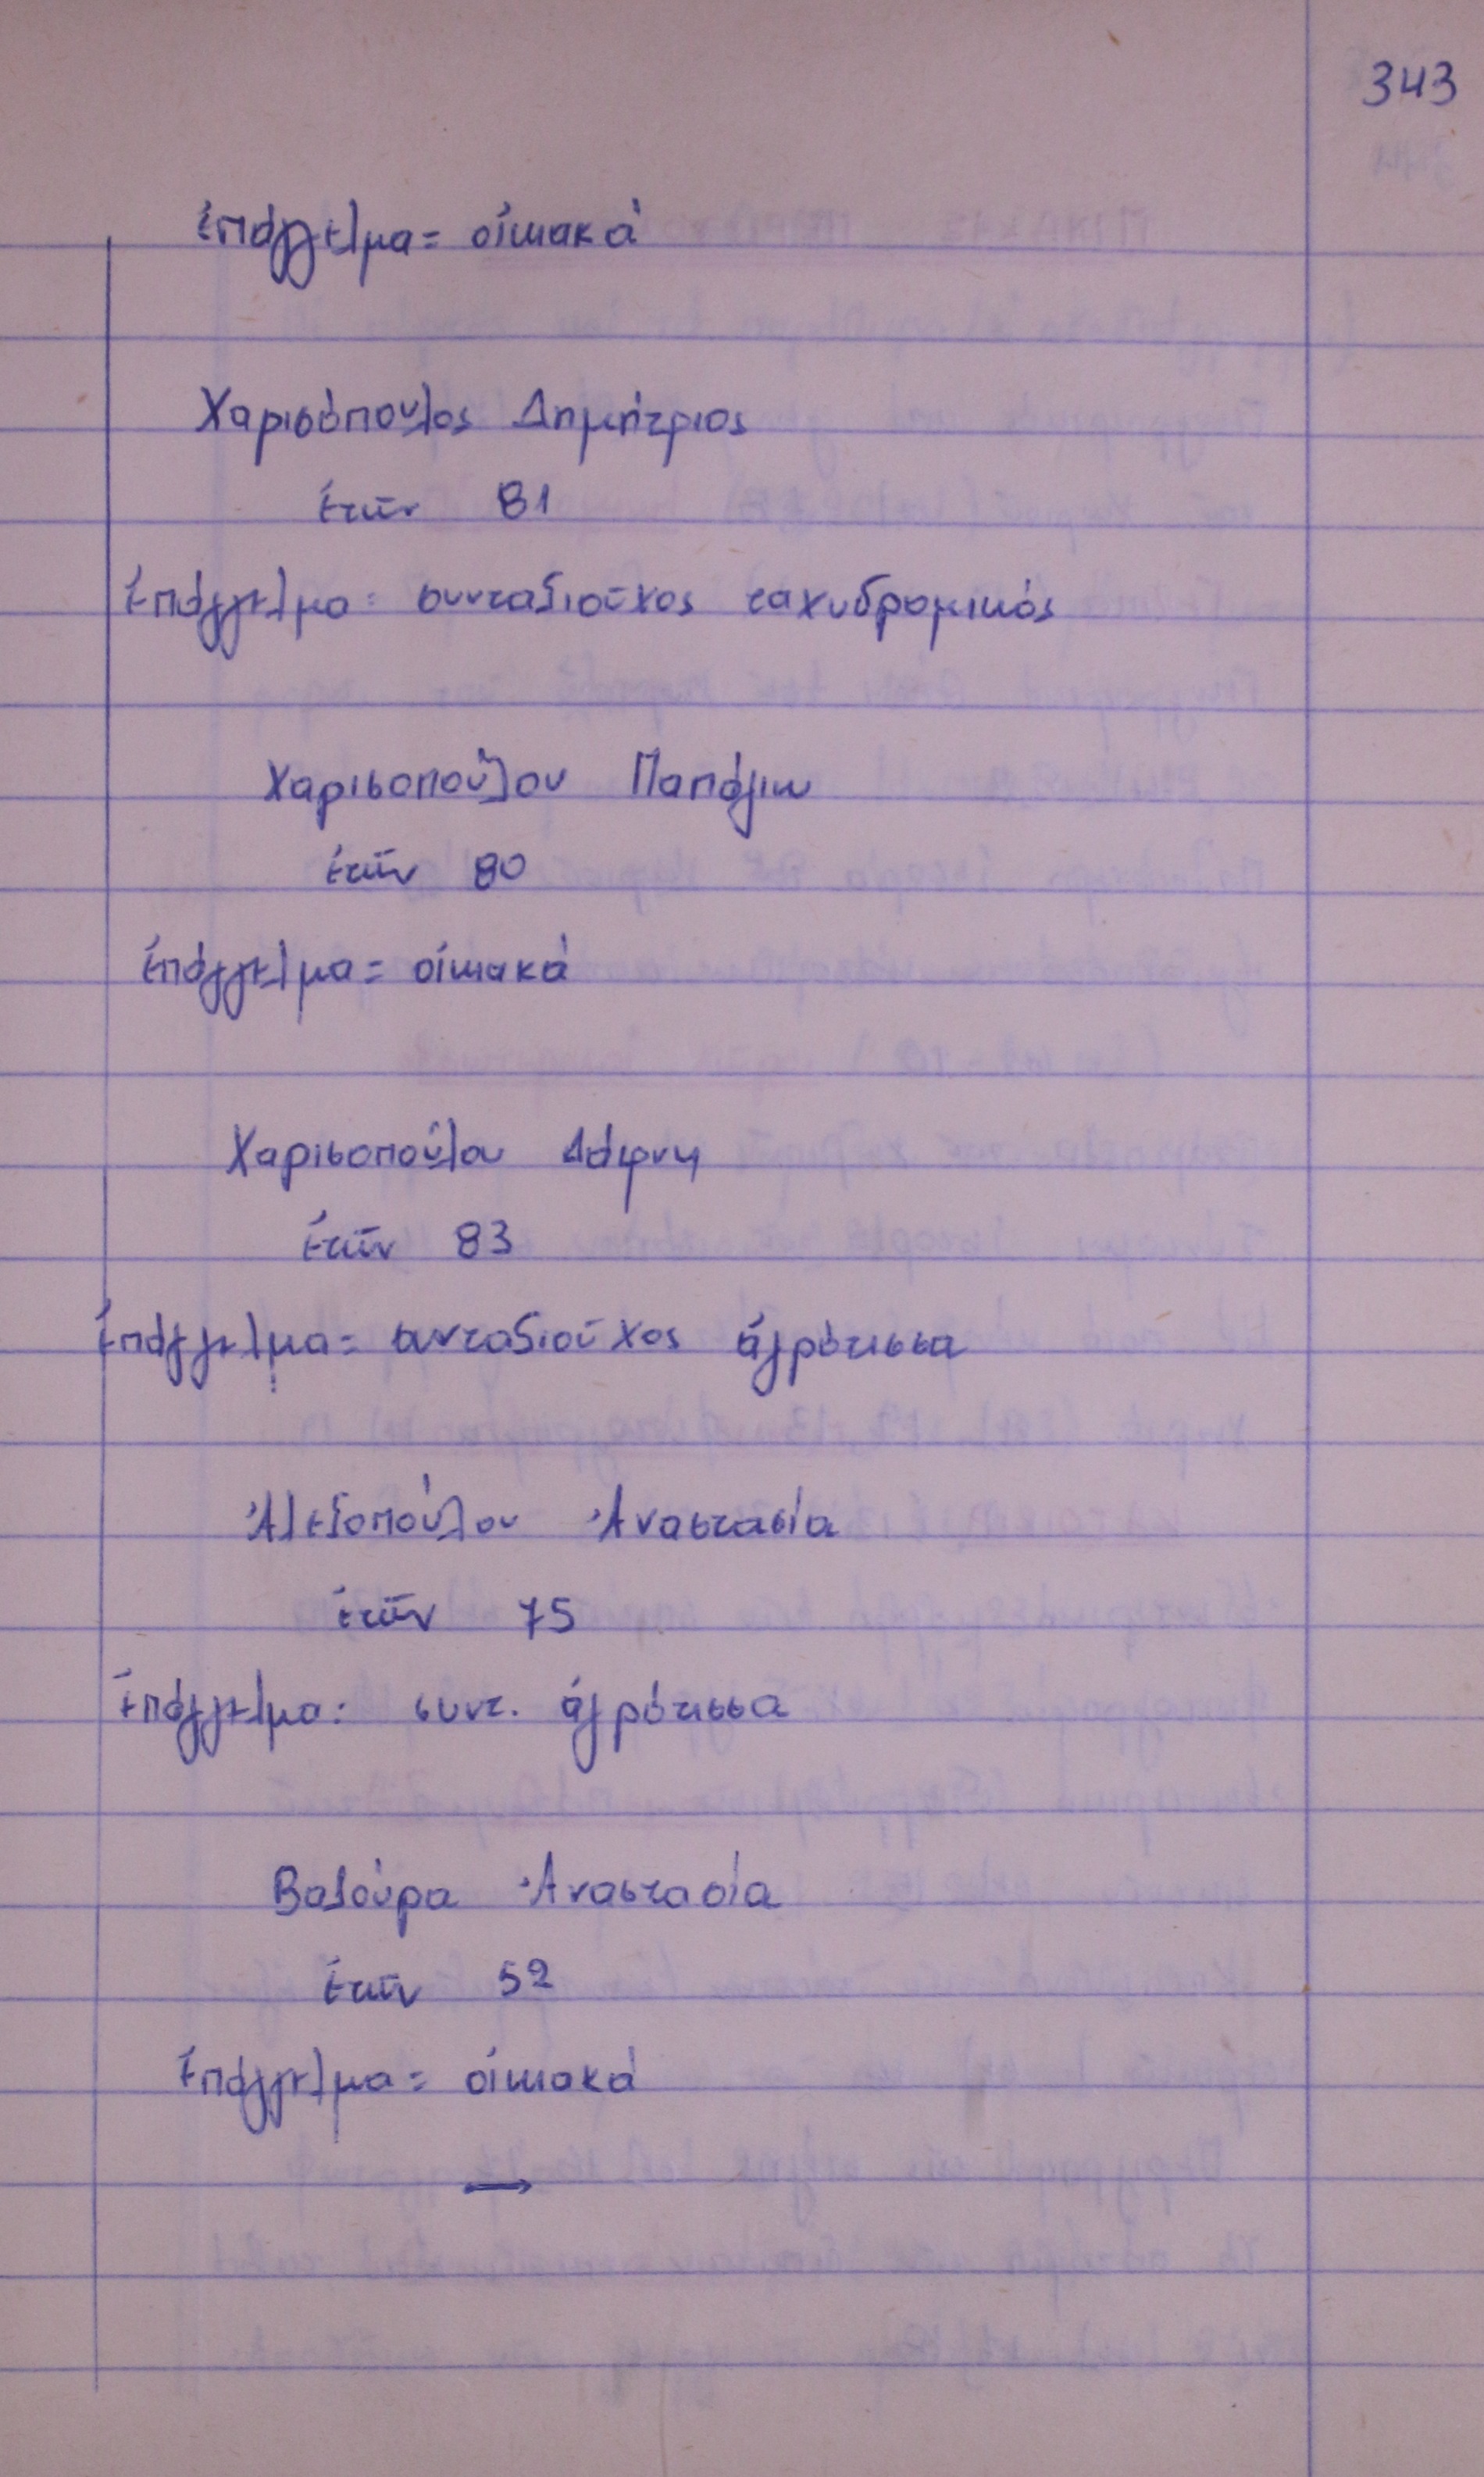 343
ἐπάγγελμα = οἰκιακά
Χαρισόπουλος Δημήτριος
ἐτῶν 81
ἐπάγγελμα = συνταξιοῦχος ταχυδρομικός
Χαρισοπούλου Παπάγιω
ἐτῶν 80
ἐπάγγελμα = οἰκιακά
Χαρισοπούλου Δάφνη
ἐτῶν 83
ἐπάγγελμα = συνταξιοῦχος ἀγρότισσα
Ἀλεξοπούλου Ἀναστασία
ἐτῶν 75
ἐπάγγελμα: συντ. ἀγρότισσα
Βαξούρα Ἀναστασία
ἐτῶν 52
ἐπάγγελμα = οἰκιακά
→